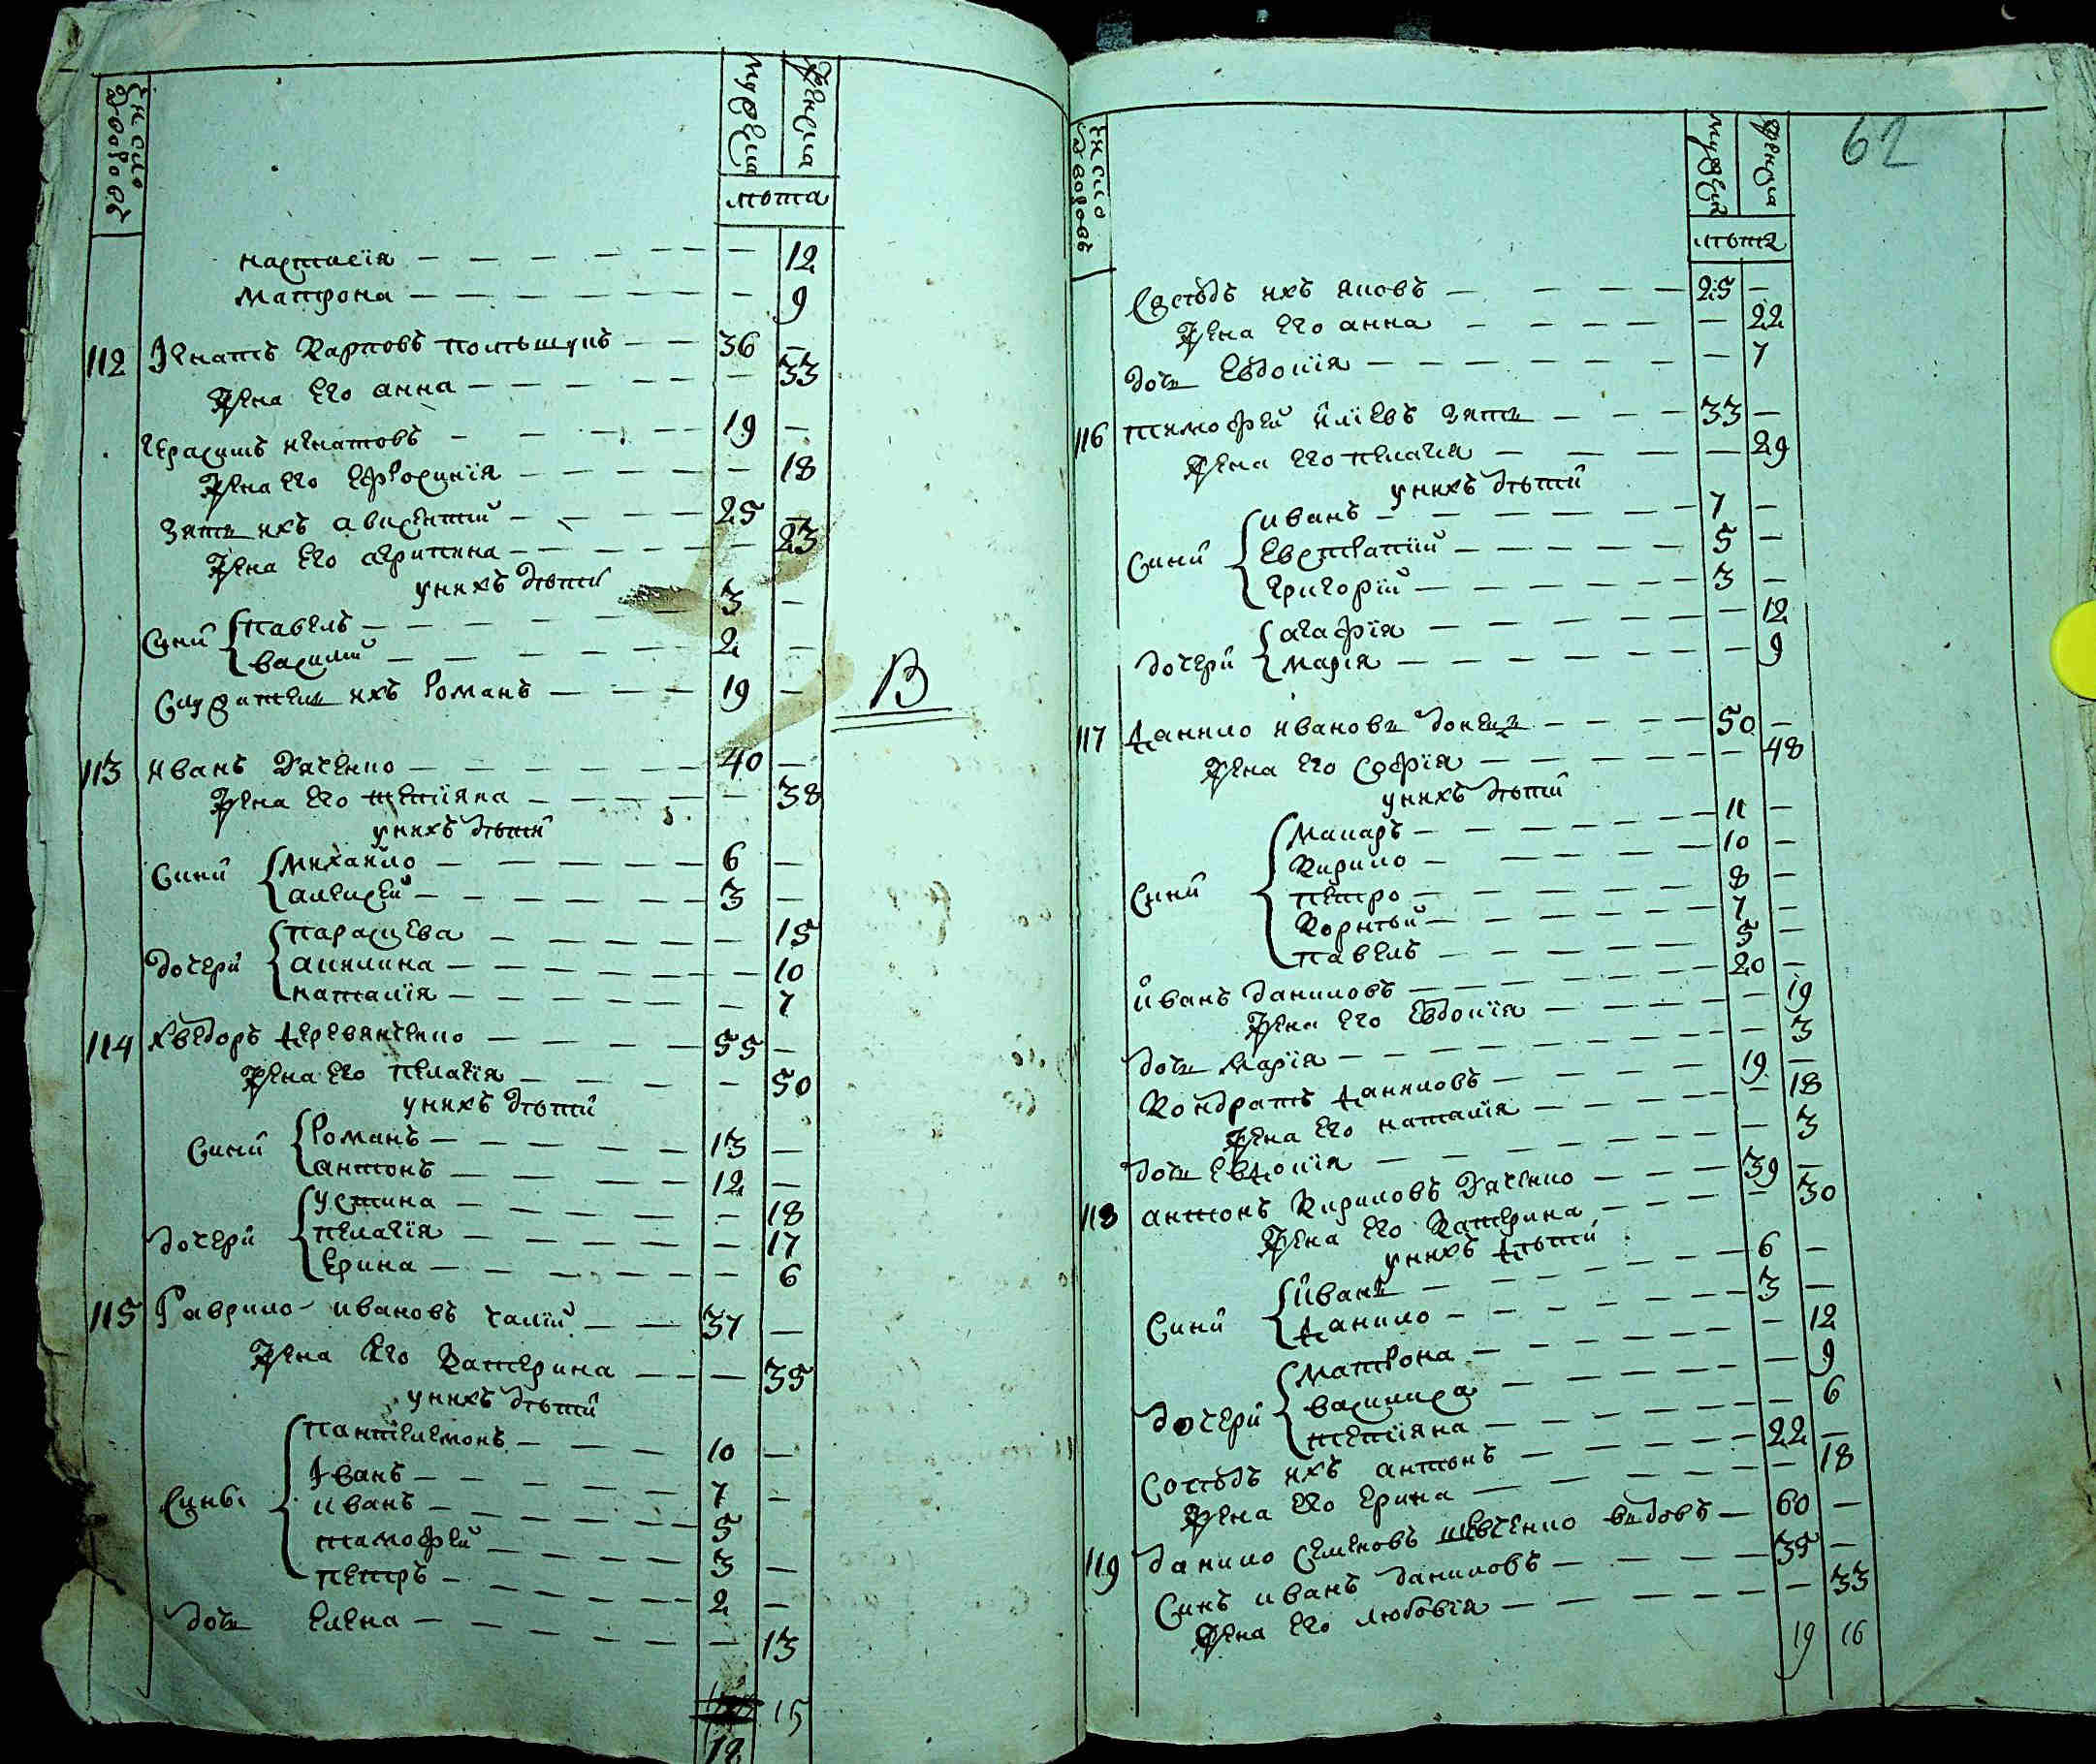 Число дворовъ
мужеска
женска
лѣта
настасїя — 12
матрона — 9
112 Игнатъ Карповъ — 36 —
жена его анна — 33
Герасимъ игнатовъ — 19 —
жена его Ефросинїя — 18
зять ихъ авксентий — 25 —
жена его агрипина — 23
у нихъ дѣти
сини павелъ — 3 —
василий — 2 —
служитель ихъ Романъ — 19 —
В
113 иванъ Дяченко — 40 —
жена его тетїяна — 38
у нихъ дѣти
сини михайло — 6 —
алексей — 3 —
дочери параскева — 15
акилина — 10
наталїя — 7
114 хведоръ деревянченко — 55 —
жена его пелагїя — 50
у нихъ дѣти
сини Романъ — 13 —
антонъ — 12 —
дочери устина — 18
пелагїя — 17
ерина — 6
115 Гаврило ивановъ чалий — 37 —
жена его Катерина — 35
у нихъ дѣти
сины пантелемонъ — 10 —
иванъ — 7 —
иванъ — 5
тимофей — 3 —
петръ — 2 —
дочь елена — 13
15
12
62
Число дворовъ
мужеска
женска
лѣта
сусѣдъ ихъ яковъ — 25 —
жена его анна — 22
дочь Евдокїя — 7
116 тимофей илїевъ зять — 33 —
жена его пелагїя — 29
у нихъ дѣти
сини иванъ — 7 —
евстратий — 5 —
григорїй — 3 —
дочери агафїя — 12
марїя — 9
117 данило ивановъ донецъ — 50 —
жена его софїя — 48
у нихъ дѣти
сини макаръ — 11 —
Кирило — 10 —
петро — 8 —
Корнѣй — 7 —
павелъ — 5 —
иванъ даниловъ — 20 —
жена его Евдокїя — 19
дочь марїя — 3
Кондратъ даниловъ — 19 —
жена его наталїя — 18
дочь евдокїя — 3
118 антонъ Кириловъ Дяченко — 39 —
жена его Катерина — 30
у нихъ дѣти
сини иванъ — 6 —
данило — 3 —
дочери матрона — 12
василиса — 9
тетїяна — 6
сосѣдъ ихъ антонъ — 22 —
жена его ерина — 18
119 данило семеновъ шевченко вдовъ — 60 —
синъ иванъ даниловъ — 35 —
жена его любовїя — 33
19 16